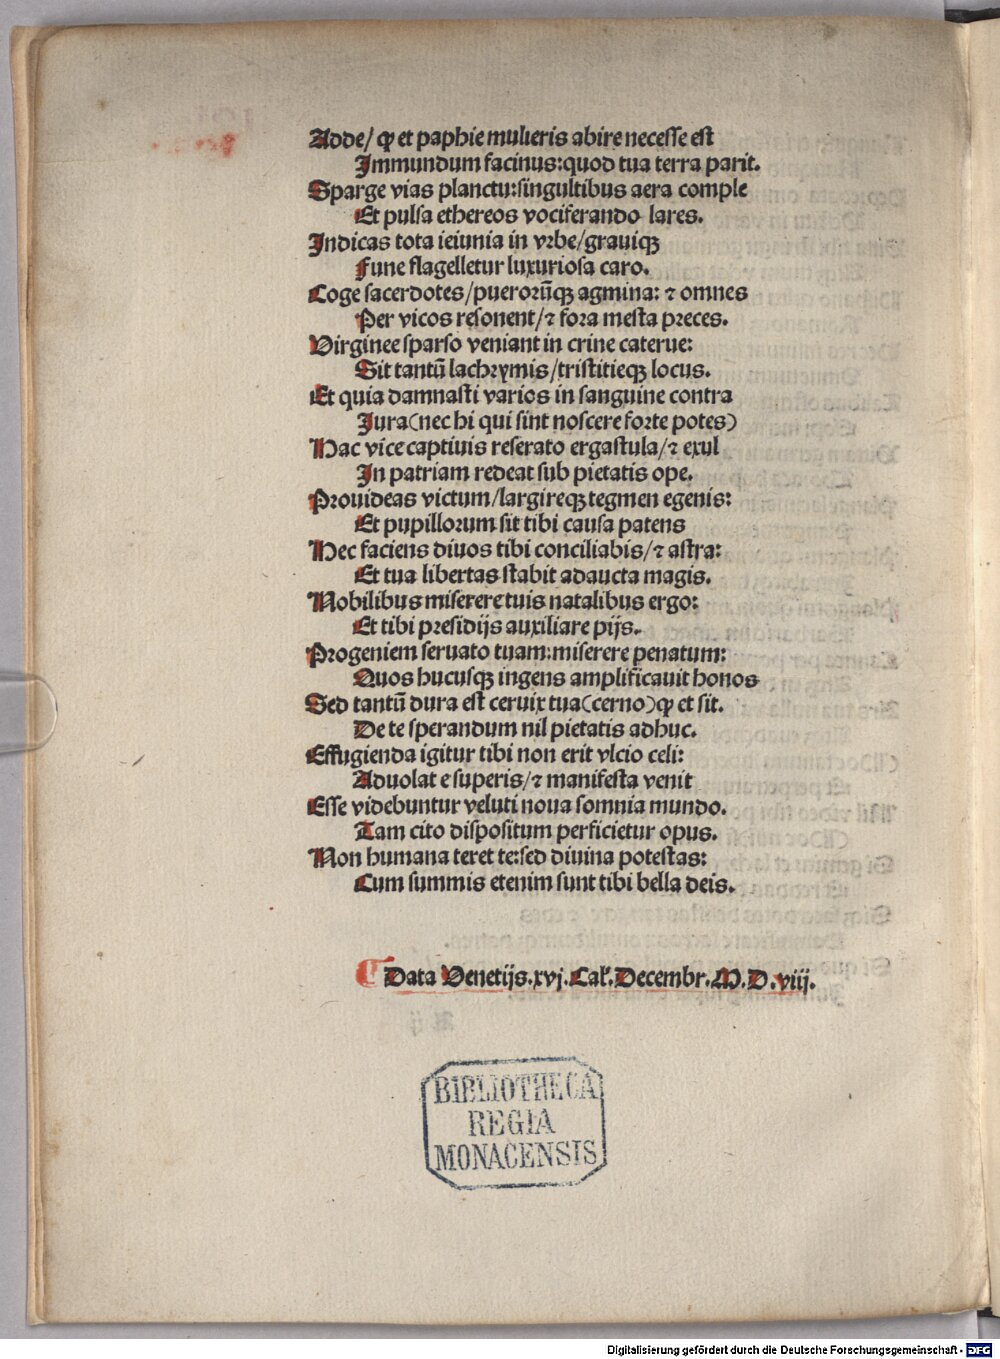 Adde/ ꝙ et paphie mulieris abire necesse est
Immundum facinus:quod tua terra parit.
Sparge vias planctu:singultibus aera comple
Et pulsa ethereos vociferando lares.
Indicas tota ieiunia in vrbe/grauiqꝫ
Fune flagelletur luxuriosa caro.
Coge sacerdotes/puerorūqꝫ agmina: ⁊ omnes
Per vicos resonent/⁊ fora mesta preces.
Virginee sparso veniant in crine caterue:
Sit tantū lachrymis/tristitieqꝫ locus.
Et quia damnasti varios in sanguine contra
Jura(nec hi qui sint noscere forte potes)
Hac vice captiuis reserato ergastula/⁊ exul
In patriam redeat sub pietatis ope.
Prouideas victum/largireqꝫ tegmen egenis:
Et pupillorum sit tibi causa patens
Hec faciens diuos tibi conciliabis/⁊ astra:
Et tua libertas stabit adaucta magis.
Nobilibus miserere tuis natalibus ergo:
Et tibi presidijs auxiliare pijs.
Progeniem seruato tuam:miserere penatum:
Quos hucusqꝫ ingens amplificauit honos
Sed tantū dura est ceruix tua(cerno)ꝙ et sit.
De te sperandum nil pietatis adhuc.
Effugienda igitur tibi non erit vlcio celi:
Aduolat e superis/⁊ manifesta venit
Esse videbuntur veluti noua somnia mundo.
Tam cito dispositum perficietur opus.
Non humana teret te:sed diuina potestas:
Cum summis etenim sunt tibi bella deis.
¶ Data Venetijs.xvj.Cal'.Decembr.M.D.viij.
BIBLIOTHECA
REGIA
MONACENSIS
Digitalisierung gefördert durch die Deutsche Forschungsgemeinschaft - DFG